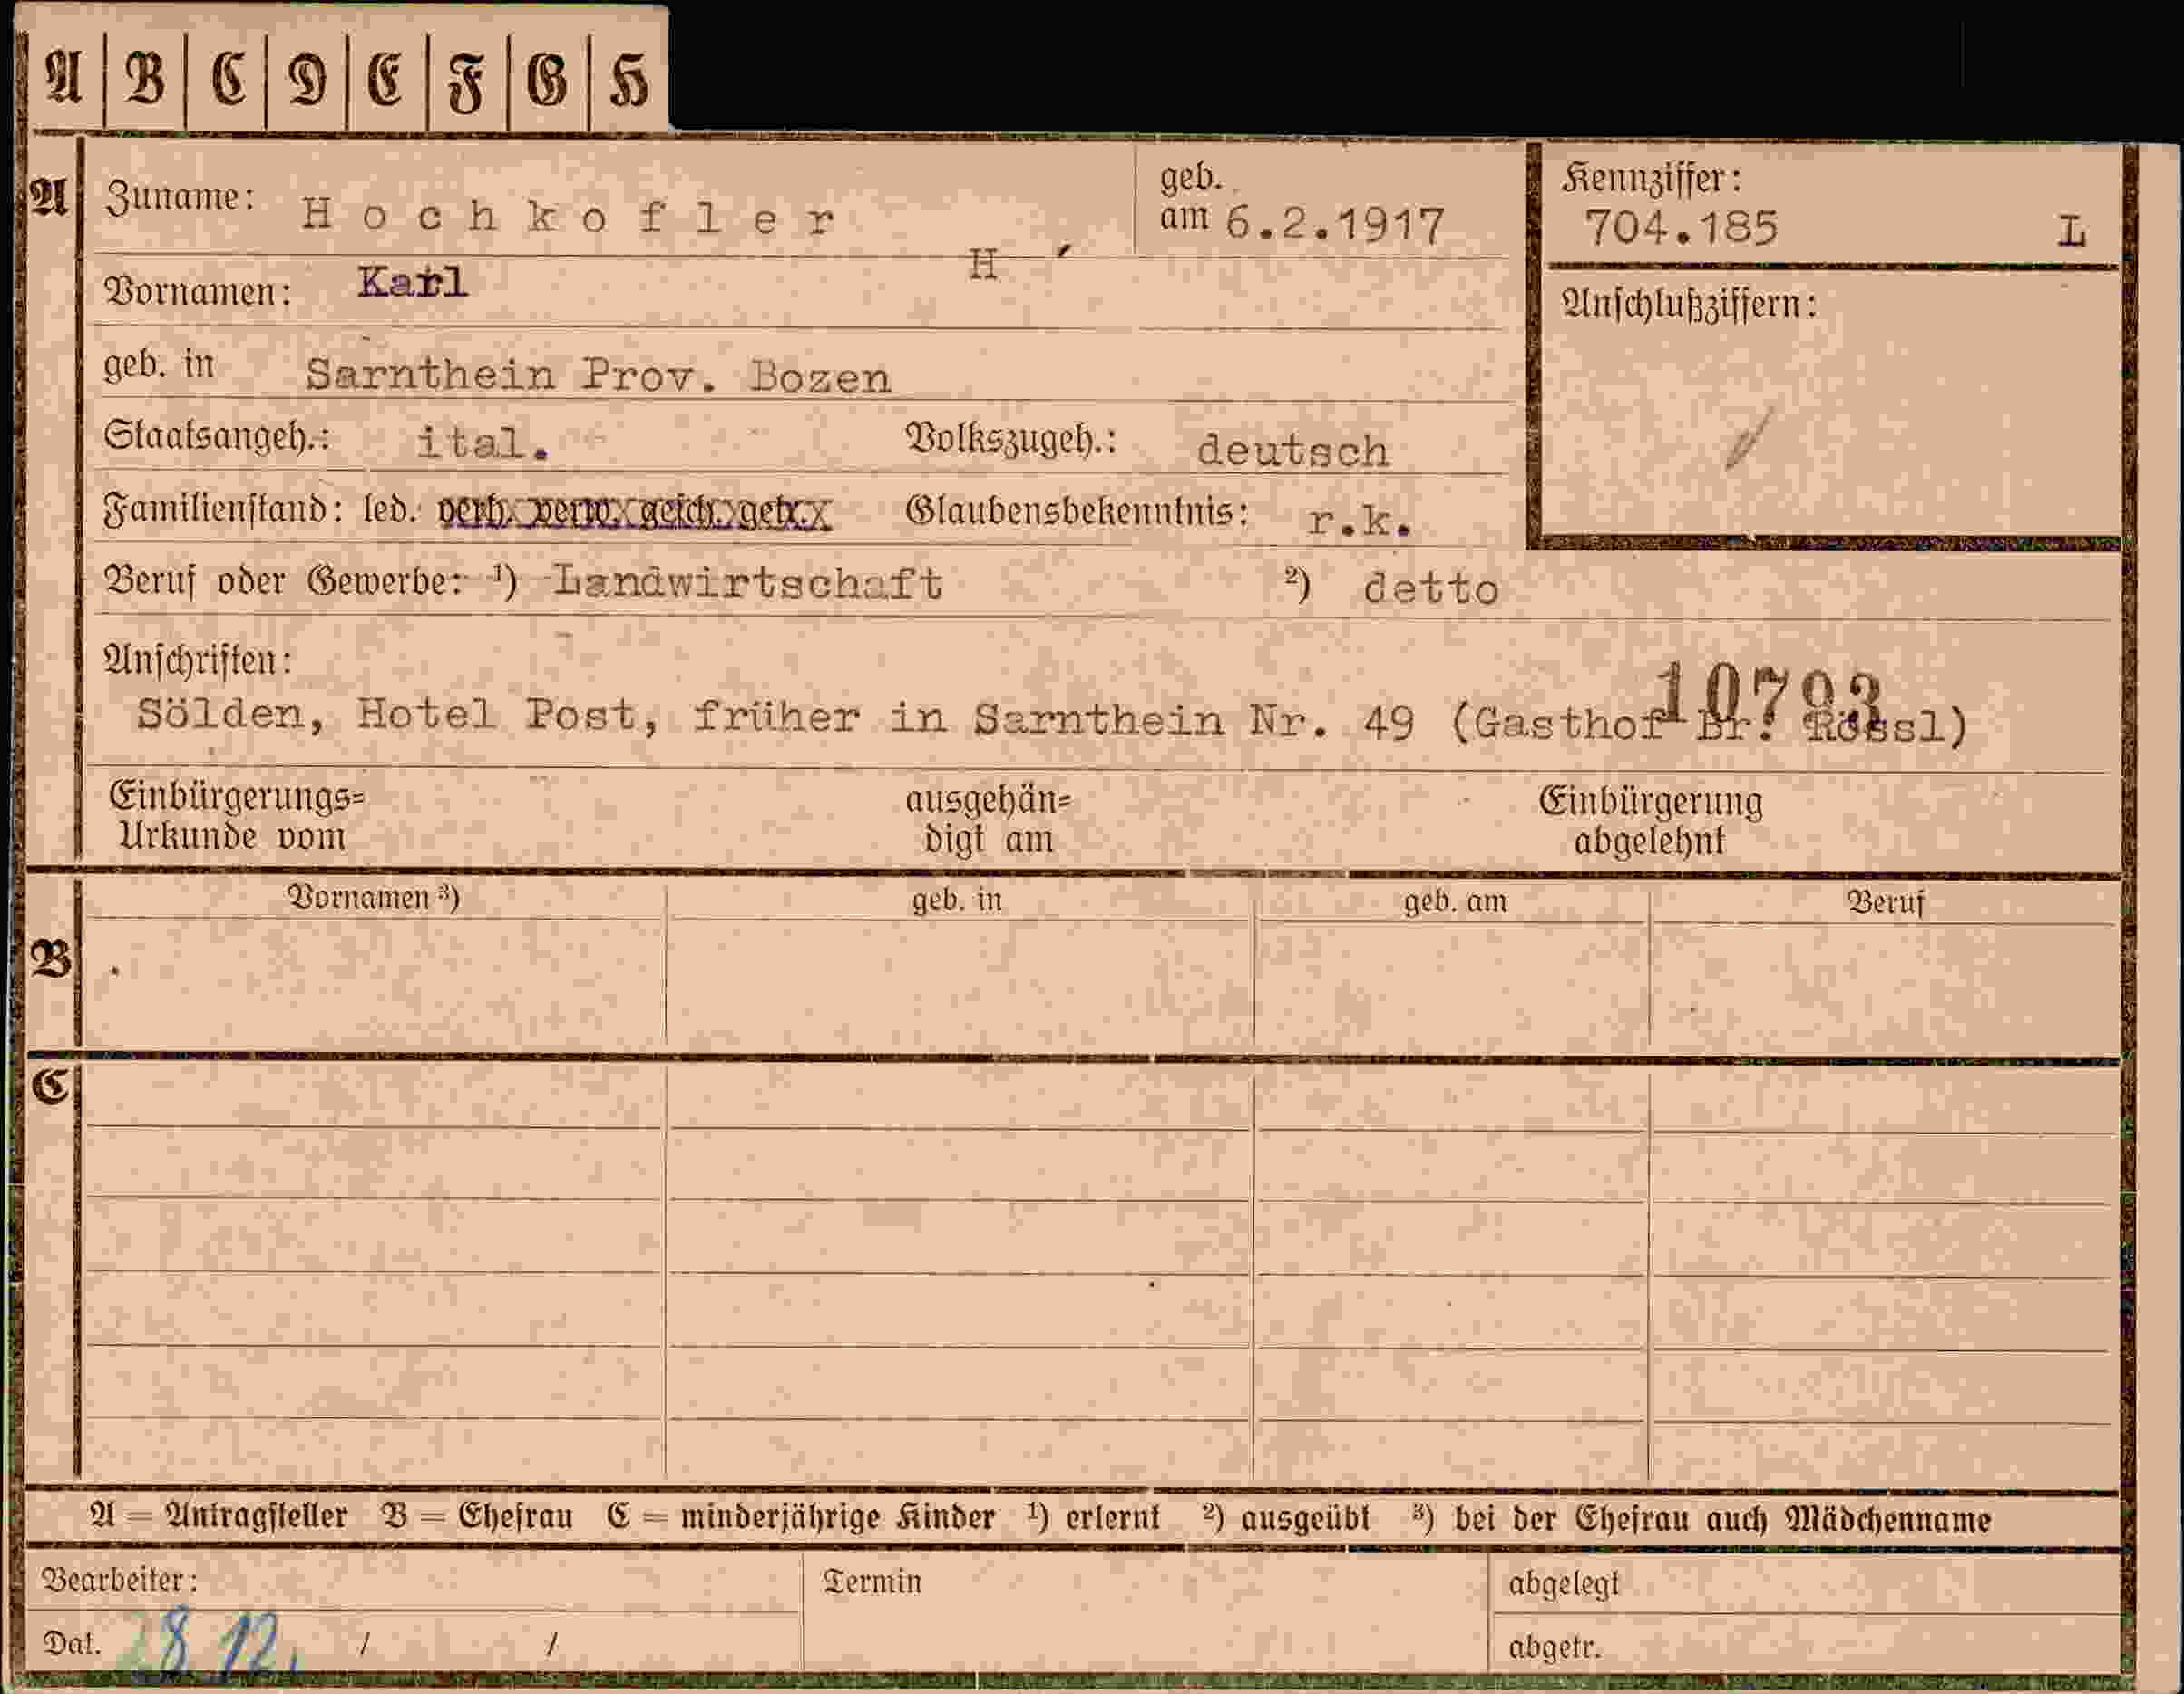 A B C D E F G H
A Zuname: Hochkofler geb. am 6.2.1917 Kennziffer: 704.185 L
H
Vornamen: Karl Anschlußziffern:
geb. in Sarnthein Prov. Bozen
Staatsangeh.: ital. Volkszugeh.: deutsch
Familienstand: led. verh. verw. gesch. getr. Glaubensbekenntnis: r.k.
Beruf oder Gewerbe: ¹) Landwirtschaft ²) detto
Anschriften: 10793
Sölden, Hotel Post, früher in Sarnthein Nr. 49 (Gasthof Br. Rössl)
Einbürgerungs= ausgehän= Einbürgerung
Urkunde vom digt am abgelehnt
Vornamen ³) geb. in geb. am Beruf
B
C
A = Antragsteller B = Ehefrau C = minderjährige Kinder ¹) erlernt ²) ausgeübt ³) bei der Ehefrau auch Mädchenname
Bearbeiter: Termin abgelegt
Dat. 8.12. / / abgetr.